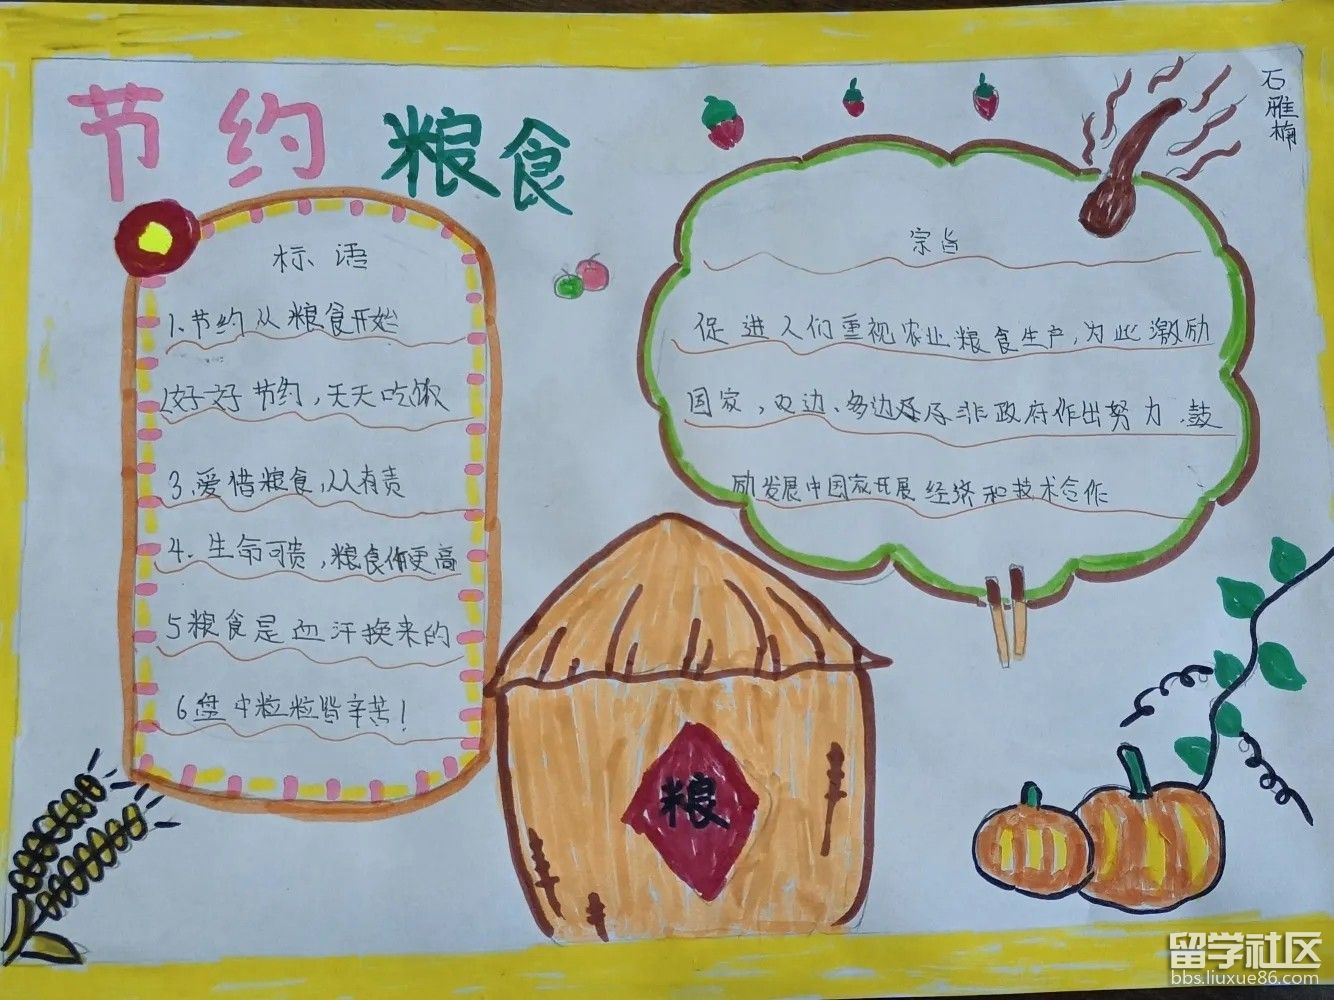 节约粮食
石雅楠
标语
1.节约从粮食开始
2好好节约,天天吃饭
3.爱惜粮食,从有责
4.生命可贵,粮食你更高
5粮食是血汗换来的
6盘中粒粒皆辛苦!
宗旨
促进人们重视农业粮食生产,为此激励
国家,双边、多边及非政府作出努力.鼓
励发展中国家开展经济和技术合作
粮
留学社区
bbs.liuxue86.com